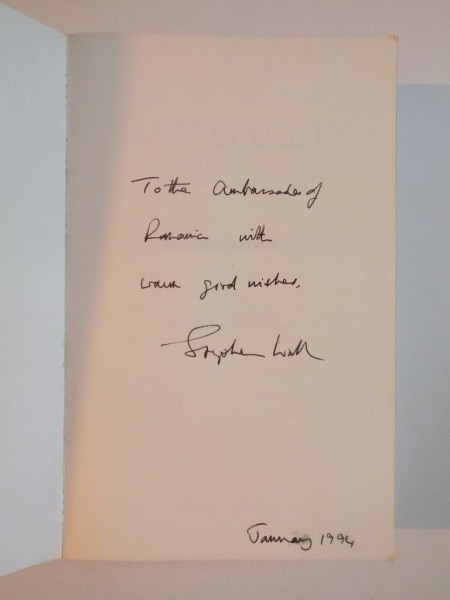 To the Ambassador of
Romania with
warm good wishes.
Stephen Wall
January 1994